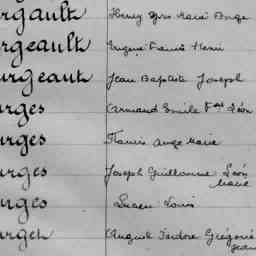 rgault Henry Yves Marie Ange
rgeault Eugène Francis Henri
urgeault Jean Baptiste Joseph
urges Armand Emile Léon
urges Francis Ange Marie
urges Joseph Guillaume Léon
Marie
urges Lucien Louis
urget August Isidore Grégoire
Jean